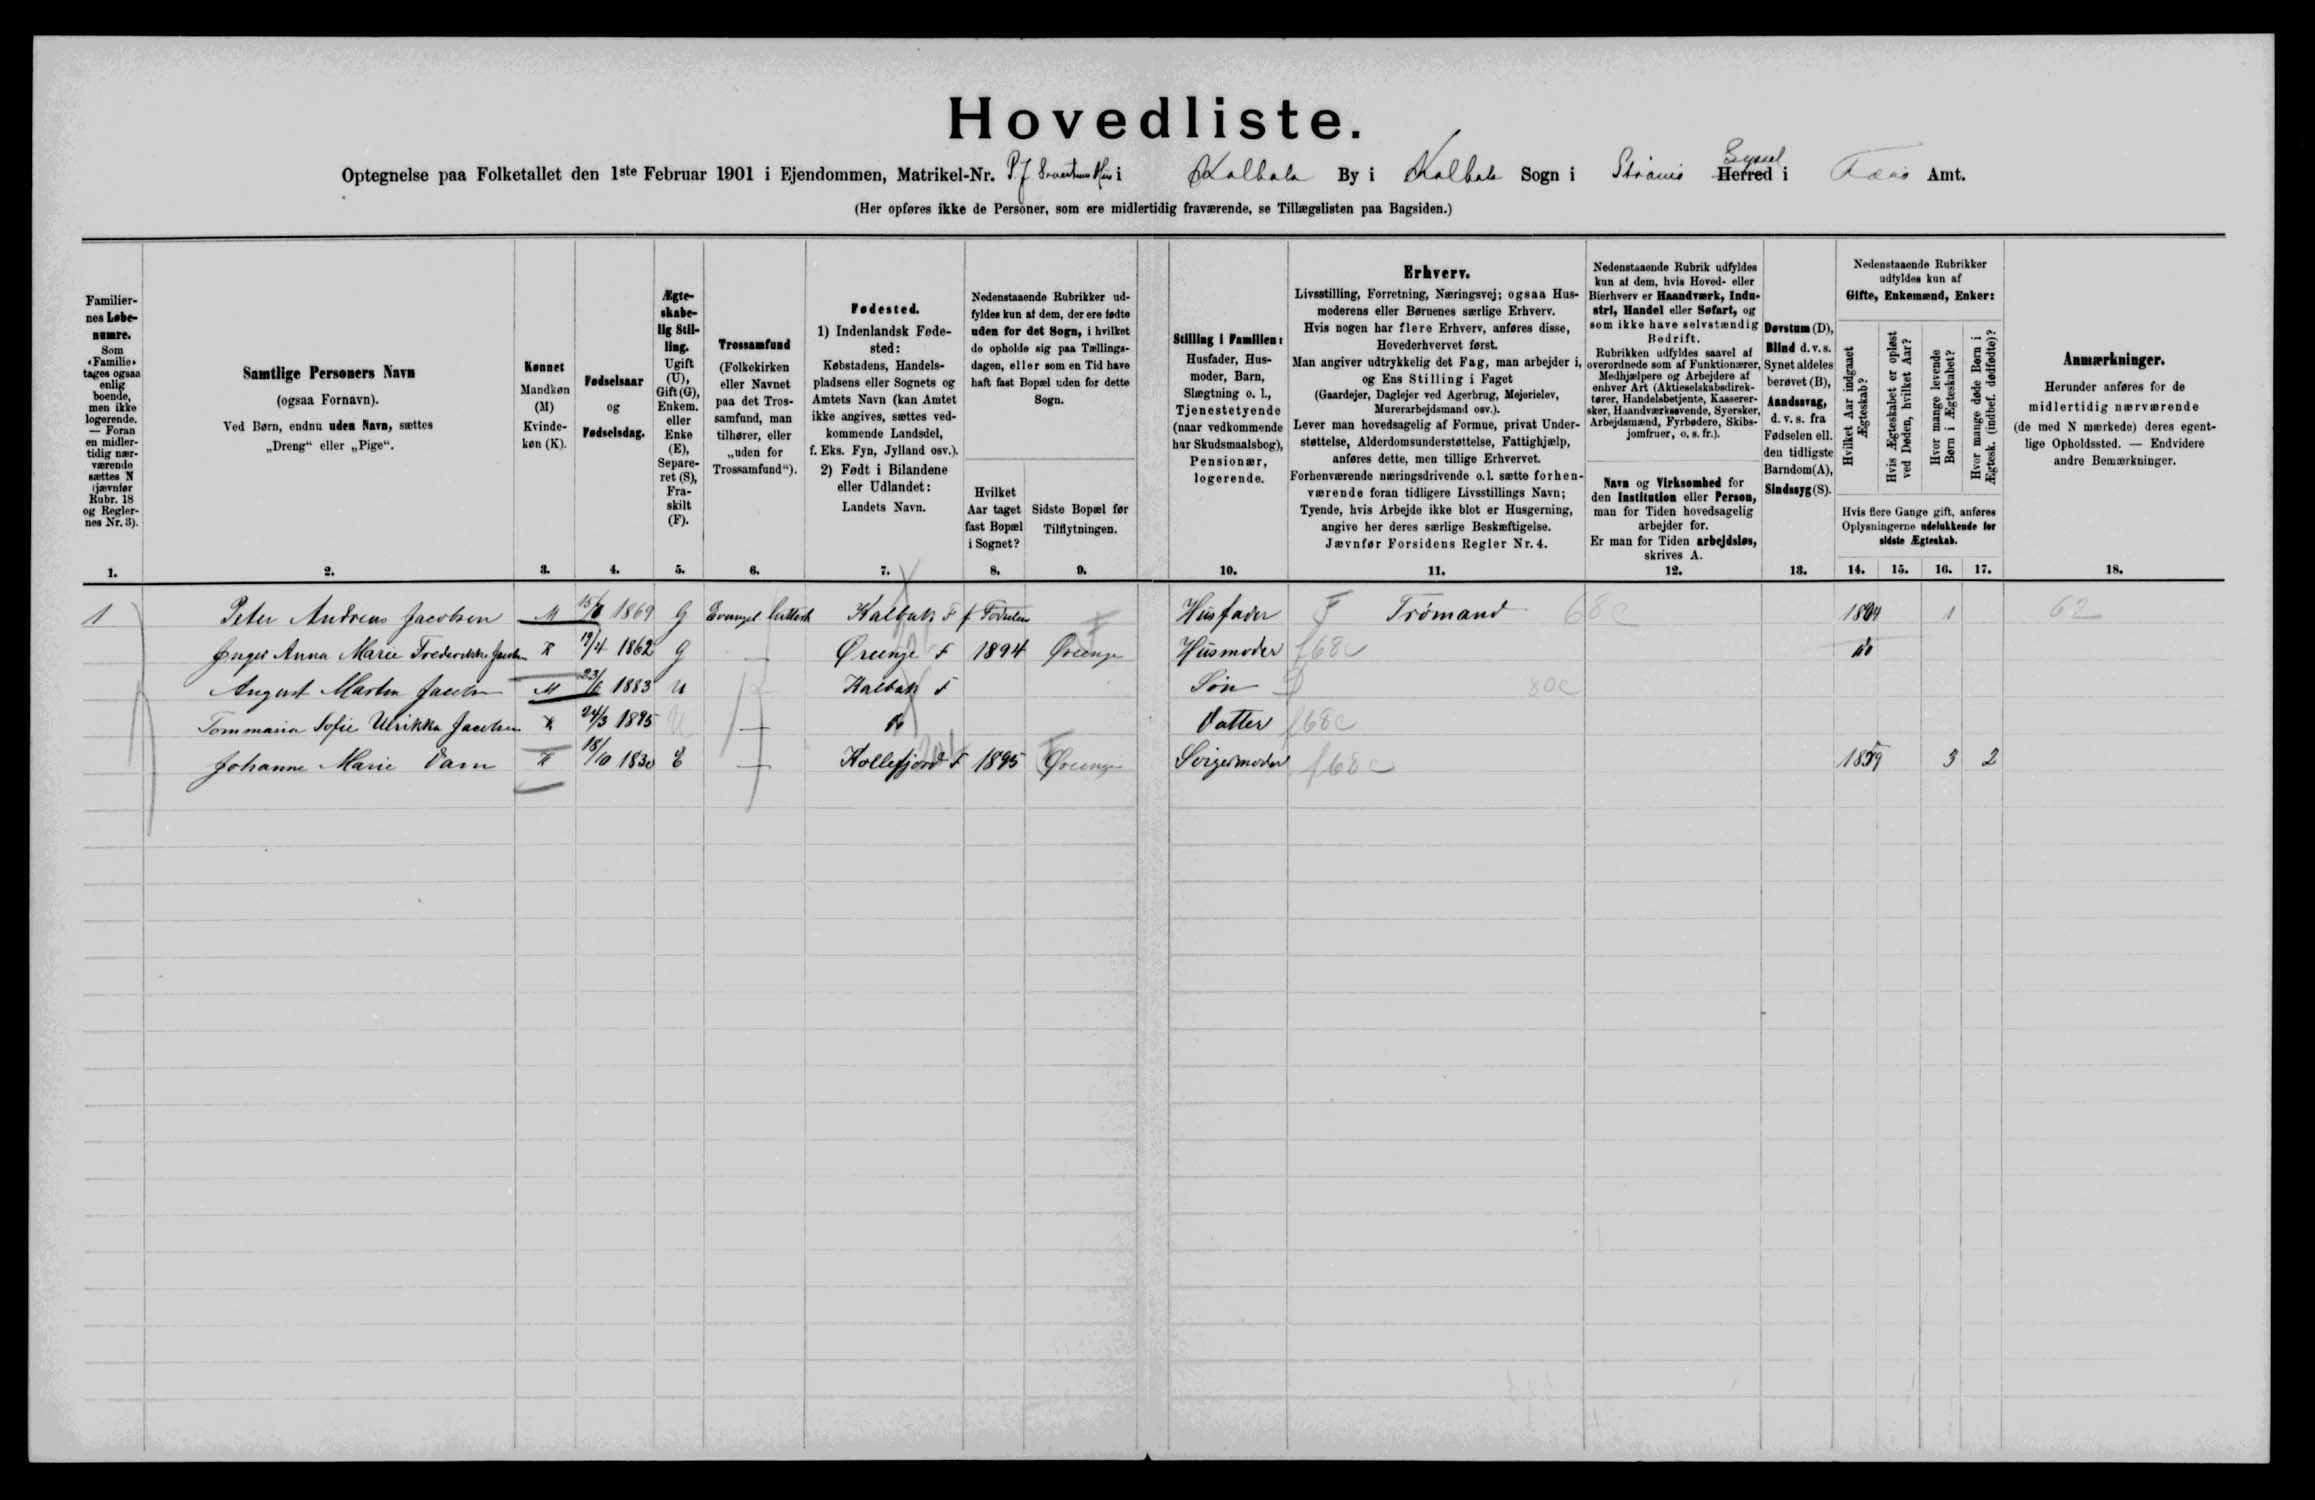 Hovedliste.
Optegnelse paa Folketallet den 1ste Februar 1901 i Ejendommen, Matrikel-Nr. P. J. i Kalbak By i Kalbak Sogn i Strømø Herred Syssel i Færø Amt.
(Her opføres ikke de Personer, som ere midlertidig fraværende, se Tillægslisten paa Bagsiden.)
Familier-
nes Løbe-
numre.
Som
«Familie»
tages ogsaa
enlig
boende,
men ikke
logerende.
— Foran
en midler-
tidig nær-
værende
sættes N
(jævnfør
Rubr. 18
og Regler-
nes Nr. 3).
1.
Samtlige Personers Navn
(ogsaa Fornavn).
Ved Børn, endnu uden Navn, sættes
„Dreng“ eller „Pige“.
2.
Kønnet
Mandkøn
(M)
Kvinde-
køn (K).
3.
Fødselsaar
og
Fødselsdag.
4.
Ægte-
skabe-
lig Stil-
ling.
Ugift
(U),
Gift (G),
Enkem.
eller
Enke
(E),
Separe-
ret (S),
Fra-
skilt
(F).
5.
Trossamfund
(Folkekirken
eller Navnet
paa det Tros-
samfund, man
tilhører, eller
„uden for
Trossamfund“).
6.
Fødested.
1) Indenlandsk Føde-
sted:
Købstadens, Handels-
pladsens eller Sognets og
Amtets Navn (kan Amtet
ikke angives, sættes ved-
kommende Landsdel,
f. Eks. Fyn, Jylland osv.).
2) Født i Bilandene
eller Udlandet:
Landets Navn.
7.
Nedenstaaende Rubrikker ud-
fyldes kun af dem, der ere fødte
uden for det Sogn, i hvilket
de opholde sig paa Tællings-
dagen, eller som en Tid have
haft fast Bopæl uden for dette
Sogn.
Hvilket
Aar taget
fast Bopæl
i Sognet?
8.
Sidste Bopæl før
Tilflytningen.
9.
Stilling i Familien:
Husfader, Hus-
moder, Barn,
Slægtning o. l.,
Tjenestetyende
(naar vedkommende
har Skudsmaalsbog),
Pensionær,
logerende.
10.
Erhverv.
Livsstilling, Forretning, Næringsvej; ogsaa Hus-
moderens eller Børnenes særlige Erhverv.
Hvis nogen har flere Erhverv, anføres disse,
Hovederhvervet først.
Man angiver udtrykkelig det Fag, man arbejder i,
og Ens Stilling i Faget
(Gaardejer, Daglejer ved Agerbrug, Mejerielev,
Murerarbejdsmand osv.).
Lever man hovedsagelig af Formue, privat Under-
støttelse, Alderdomsunderstøttelse, Fattighjælp,
anføres dette, men tillige Erhvervet.
Forhenværende næringsdrivende o. l. sætte forhen-
værende foran tidligere Livsstillings Navn;
Tyende, hvis Arbejde ikke blot er Husgerning,
angive her deres særlige Beskæftigelse.
Jævnfør Forsidens Regler Nr. 4.
11.
Nedenstaaende Rubrik udfyldes
kun af dem, hvis Hoved- eller
Bierhverv er Haandværk, Indu-
stri, Handel eller Søfart, og
som ikke have selvstændig
Bedrift.
Rubrikken udfyldes saavel af
overordnede som af Funktionærer,
Medhjælpere og Arbejdere af
enhver Art (Aktieselskabsdirek-
tører, Handelsbetjente, Kasserer-
sker, Haandværkssvende, Syersker,
Arbejdsmænd, Fyrbødere, Skibs-
jomfruer, o. s. fr.).
Navn og Virksomhed for
den Institution eller Person,
man for Tiden hovedsagelig
arbejder for.
Er man for Tiden arbejdsløs,
skrives A.
12.
Døvstum (D),
Blind d. v. s.
Synet aldeles
berøvet (B),
Aandssvag,
d. v. s. fra
Fødselen ell.
den tidligste
Barndom (A),
Sindssyg (S).
13.
Nedenstaaende Rubrikker
udfyldes kun af
Gifte, Enkemænd, Enker:
Hvilket Aar indgaaet
Ægteskab?
Hvis Ægteskabet er opløst
ved Døden, hvilket Aar?
Hvor mange levende
Børn i Ægteskabet?
Hvor mange døde Børn i
Ægtesk. (indbef. dødfødte)?
Hvis flere Gange gift, anføres
Oplysningerne udelukkende for
sidste Ægteskab.
14. 15. 16. 17.
Anmærkninger.
Herunder anføres for de
midlertidig nærværende
(de med N mærkede) deres egent-
lige Opholdssted. — Endvidere
andre Bemærkninger.
18.
1 Peter Andreas Jacobsen M 1869 G Evangel luthersk Kalbak F f Fødselen Husfader F Trømand 68c 1894 1 62
Inger Anna Marie Frederikke Jacobsen K 19/4 1862 G — Øreenge F 1894 Øreenge Husmoder f68c do
August Martin Jacobsen M 1883 U Kalbak F Søn 80c
Tommasia Sofie Ulrikka Jacobsen K 24/3 1895 U — do Datter f68c
Johanne Marie Dam K 18/10 1830 E — Kollefjord F 1895 Øreenge Svigermoder f68c 1859 3 2